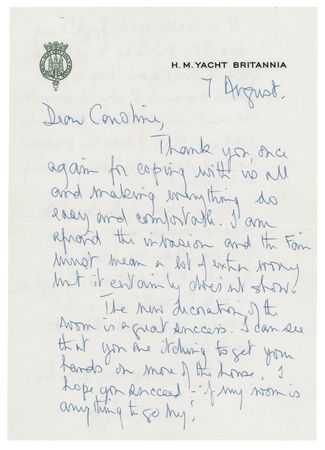 H. M. YACHT BRITANNIA
7 August.
Dear Caroline,
Thank you, once
again for coping with us all
and making everything so
easy and comfortable. I am
afraid the invasion and the Fair
must mean a lot of extra worry
but it certainly doesn't show.
The new decoration of the
room is a great success. I can see
that you are itching to get your
hands on more of the house. I
hope you succeed - if my room is
anything to go by!